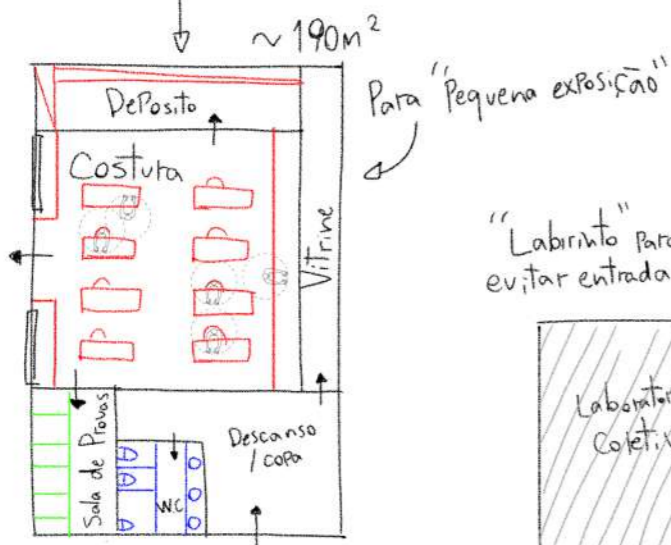 ~ 190m²
Para "Pequena exposição"
DePosito
Costura
Vitrine
"Labirinto" Para
evitar entrada
Sala de Provas
WC
Descanso
/ copa